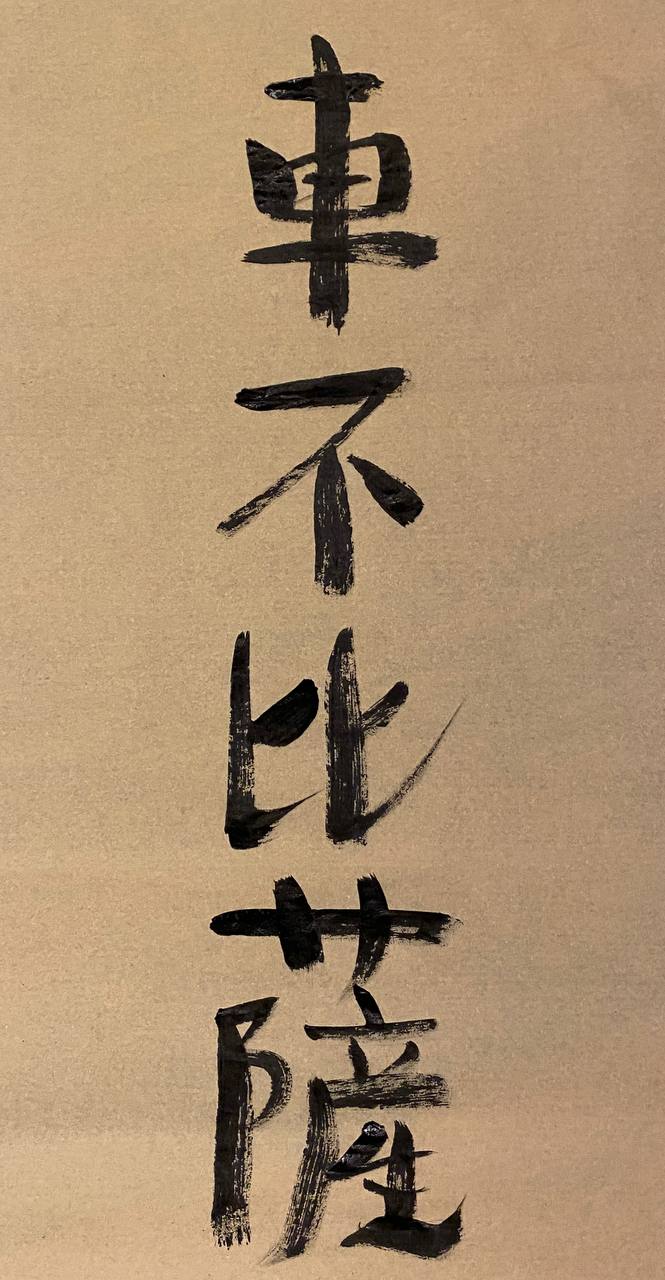 車不比薩